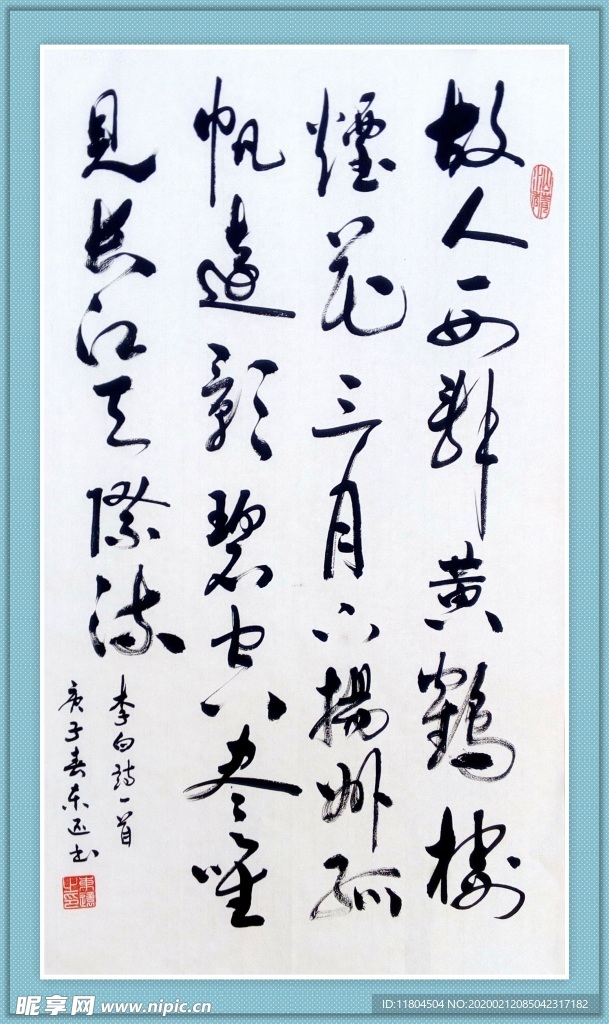 故人西辭黄鶴樓
煙花三月下揚州孤
帆遠影碧空尽唯
見長江天際流
李白詩一首
庚子春东书
昵享网 www.nipic.cn
ID:11804504 NO:20200212085042317182